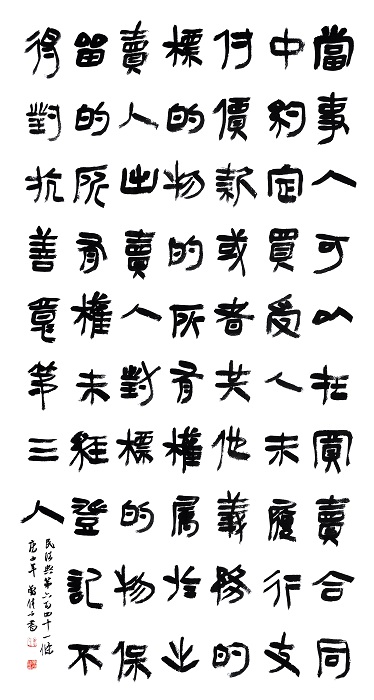 當事人可以在買賣合同
中約定買受人未履行支
付價款或者其他義務的
標的物的所有權屬於出
賣人出賣人對標的物保
留的所有權未經登記不
得對抗善意第三人
民法典第六百四十一條
庚子年